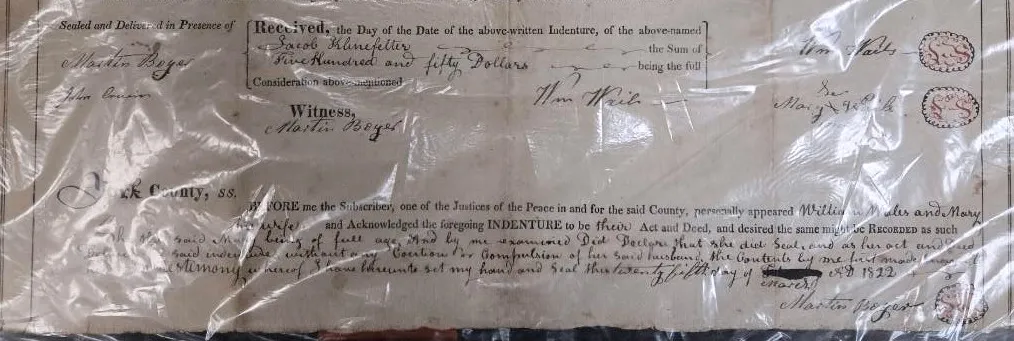 Sealed and Delivered in Presence of
Martin Boyer
John
Received, the Day of the Date of the above-written Indenture, of the above-named
Jacob Klinefelter the Sum of
Five Hundred and fifty Dollars being the full
Consideration above-mentioned
Wm Wails
Witness,
Martin Boyer
Wm Wails
L S
Mary
L S
York County, ss.
BEFORE me the Subscriber, one of the Justices of the Peace in and for the said County, personally appeared William Wales and Mary
his wife and Acknowledged the foregoing INDENTURE to be their Act and Deed, and desired the same might be RECORDED as such
She the said Mary being of full age and by me examined Did Declare that she did Seal, and as her act and Deed
said indenture without any Coertion or Compulsion of her said husband, the Contents by me first made
testimony whereof I have hereunto set my hand and Seal this twenty fifth day of AD 1822
March
Martin Boyer
L S